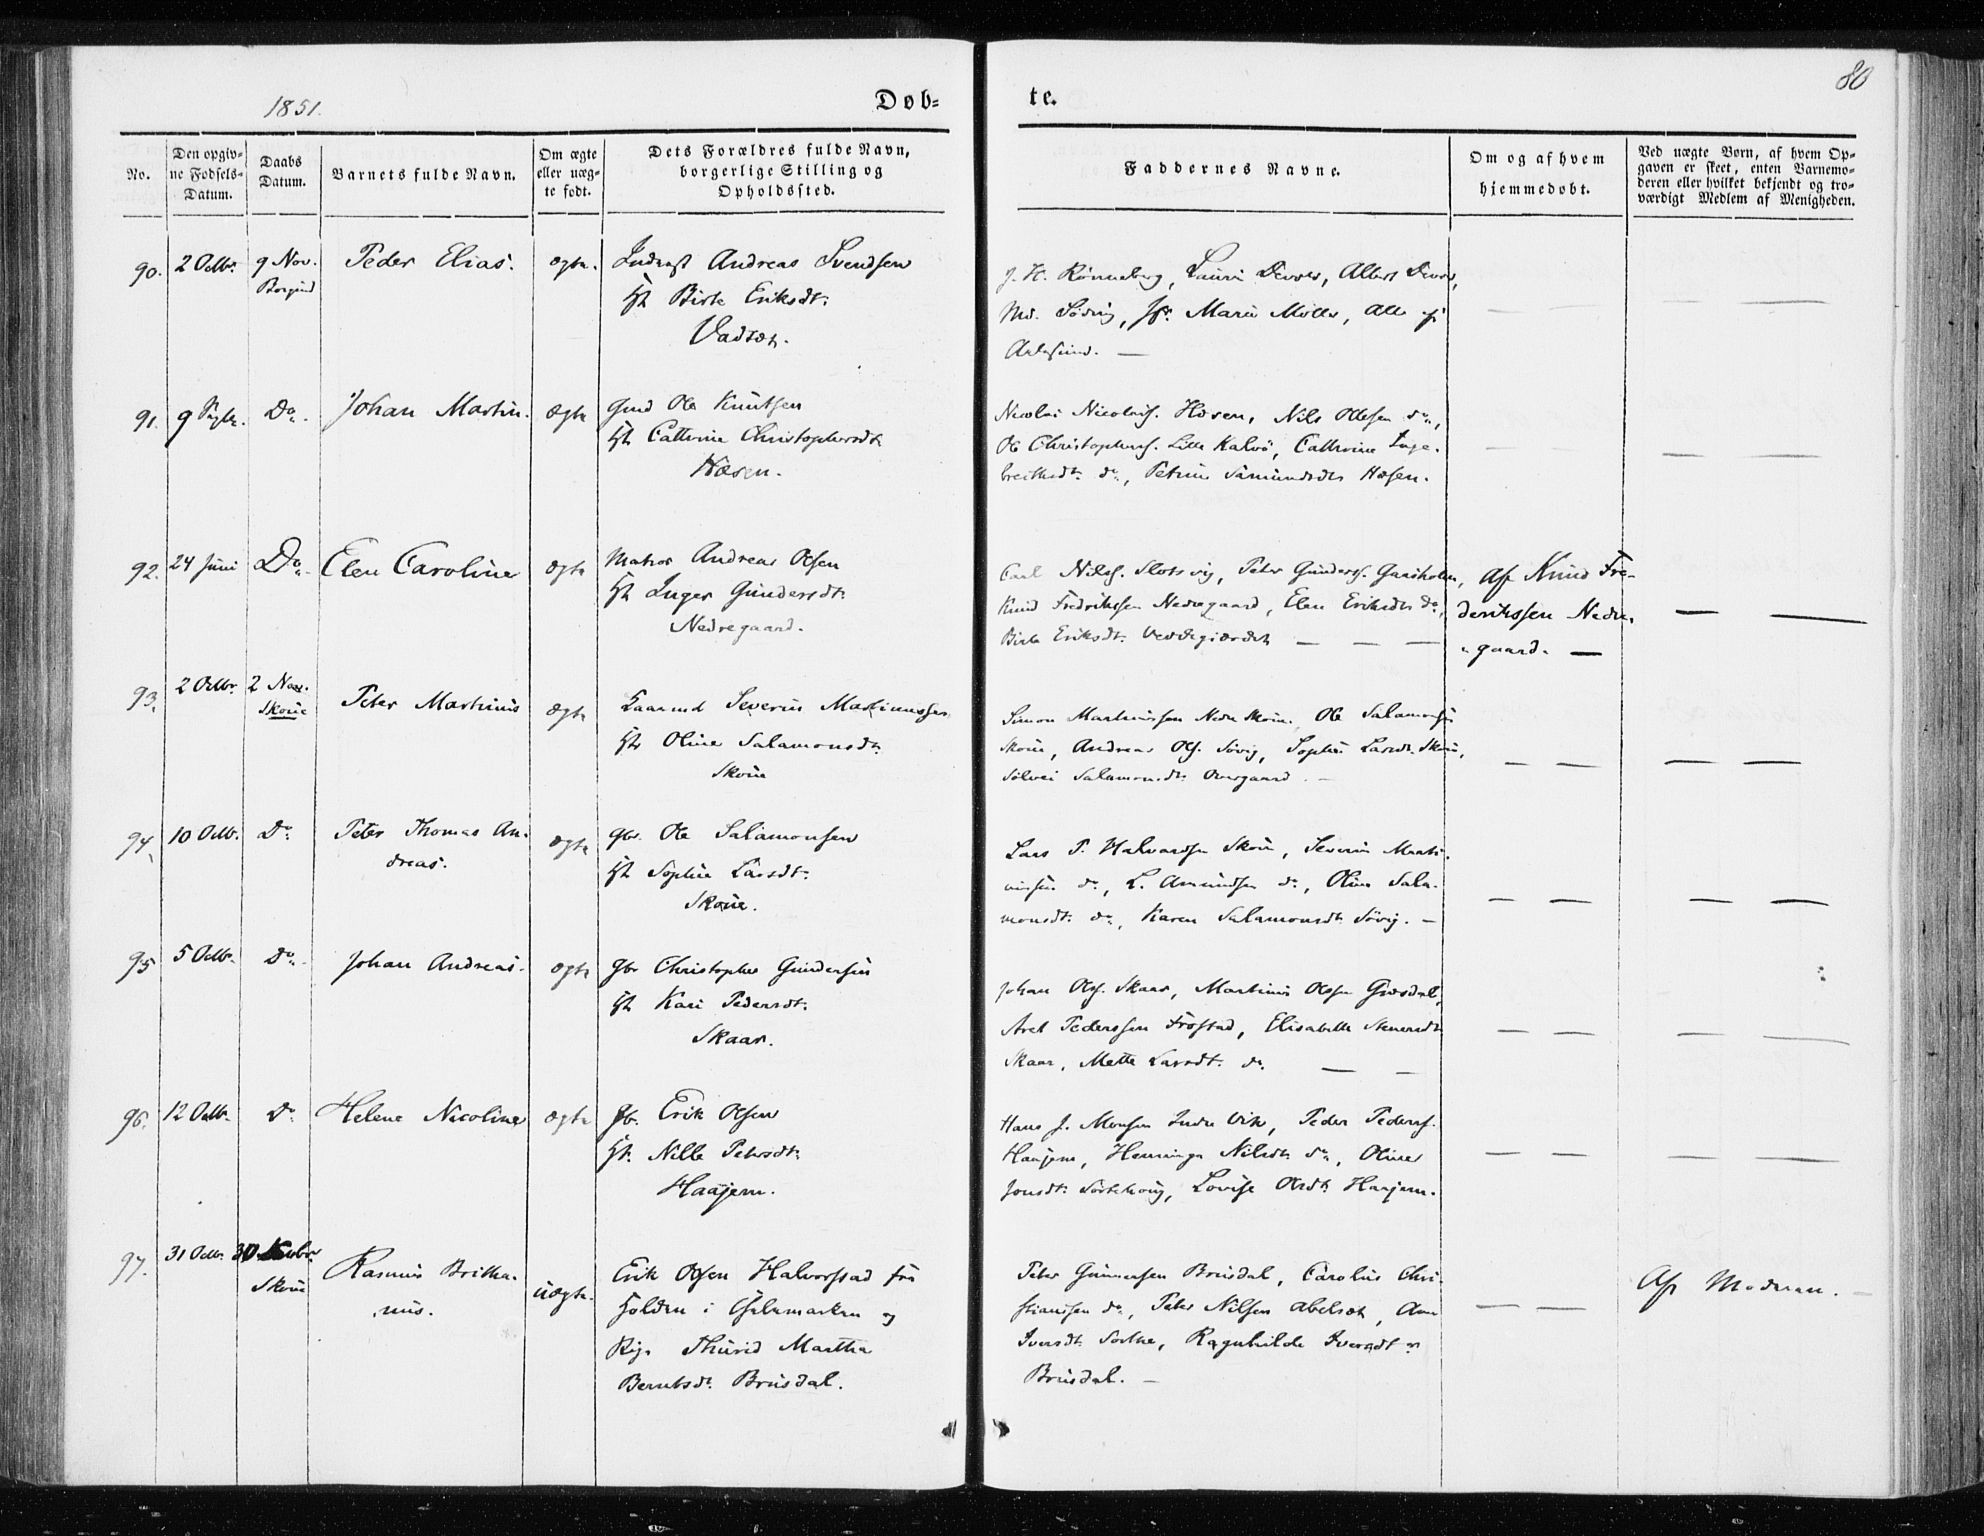 1851.
Døb=
te.
80
No.
Den opgiv=
ne Fødsels=
Datum.
Daabs
Datum.
Barnets fulde Navn.
Om ægte
eller uæg=
te født.
Dets Forældres fulde Navn,
borgerlige Stilling og
Opholdssted.
Faddernes Navne.
Om og af hvem
hjemmedøbt.
Ved uægte Børn, af hvem Op=
gaven er skeet, enten Barnemo=
deren eller hvilket bekjendt og tro=
værdigt Medlem af Menigheden.
90. 2 Octbr. 9 Nov. Peder Elias. ægte. Andreas Svendsen
Borgund
Ht Birte Eriksdt.
Vadset.
J. H. Rönneberg, Albert Devor,
Md. Söving, Jfr. Marie Möller, Alle af
Aalesund. —
91. 9 Do. Johan Martin. ægte Ole Knutsen
Ht Cathrine Christophersdt.
Hæsen.
Nicolai Nicolais. Hæsen, Nils Ollesen do,
Ole Christophers. Lille Kalvö, Cathrine Inge-
breitsdt. do, Petrine Hæsen.
92. 24 Juni Do. Elen Caroline ægte Andreas Olsen
Ht Inger Gundersdt.
Nedregaard.
Carl Nils. Slotsvig, Peter Gunders. Gaasholen,
Knud Fredrikssen Nedregaard, Elen Eriksdtr do,
Birte Eriksdt. — — —
Af Knud Fre-
derikssen Nedre-
gaard. —
93. 2 Octbr. 2 Nov. Peter Martinus ægte Gaarmd Severin Martinussen
Skoue
Ht Oline Salamonsdt.
Skoue
Simon Martinussen Nedre Skoue. Ole Salamonsen
Skoue, Andreas Ols. Sövig, Sophie Larsdt. Skoue,
Sölvei Salamonsdt. Overgaard. —
94. 10 Octbr. Do. Peter Thomas An-
dreas.
ægte gbr. Ole Salamonsen
Ht Sophie Larsdt.
Skoue.
Lars P. Halvardsen Skoue, Severin Marti-
nussen do, L. Amundsen do, Oline Sala-
monsdt. do, Karen Salamonsdt. Sövig. —
95 5 Octbr. Do. Johan Andreas. ægte Gbr Christopher Gundersen
Ht Kari Pedersdt.
Skaar.
Johan Ols. Skaar, Martinus Olsen
Pederssen Frostad, Elisabeth
Skaar, Mette Larsdt. do. — —
96. 12 Octbr. Do. Helene Nicoline ægte Gb. Erik Olsen
Ht. Nille Petersdt.
Haajem.
Hans J. Monsen Indre Vik, Peder Peders.
Haajem, Nilsdt. do, Oline
Jonsdt. Lovise Olsdt. Haajem.
97. 31 Octbr. 30 Rasmus Britha-
Skoue
nus.
uægte. Erik Olsen Halvorstad fra
Holden i og
Pige Thurid Martha
Berntsdt. Brusdal.
Peter Gunnersen Brusdal, Carolus Chri-
stiansen do, Peter Nilsen Abelsæt, Ane
Iversdt. Ragnhilde Iversdt.
Brusdal. —
Af Moderen. —